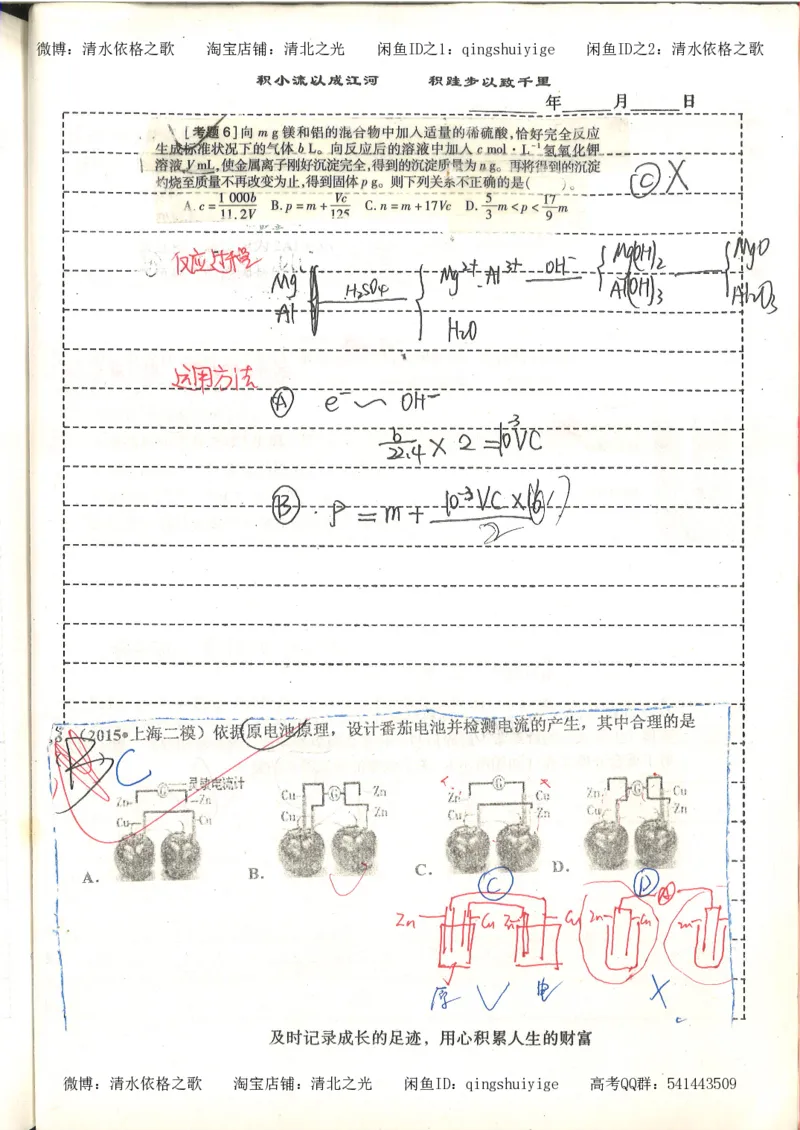 微博：清水依格之歌 淘宝店铺：清北之光 闲鱼ID之1：qingshuiyige 闲鱼ID之2：清水依格之歌
积小流以成江河 积跬步以致千里
年 月 日
[考题6]向 m g 镁和铝的混合物中加入适量的稀硫酸,恰好完全反应
生成标准状况下的气体 b L。向反应后的溶液中加入 c mol·L⁻¹ 氢氧化钾
溶液 V mL,使金属离子刚好沉淀完全,得到的沉淀质量为 n g。再将得到的沉淀
灼烧至质量不再改变为止,得到固体 p g。则下列关系不正确的是( )。
A. c = 1 000b/11.2V B. p = m + Vc/125 C. n = m + 17Vc D. 5/3 m < p < 17/9 m
Ⓒ X
反应过程
Mg Al H₂SO₄ Mg²⁺ Al³⁺ H₂O OH⁻ Mg(OH)₂ Al(OH)₃ MgO Al₂O₃
运用方法
Ⓐ e⁻ ~ OH⁻
b/22.4 × 2 = 10⁻³VC
Ⓑ P = m + 10⁻³VC × 16/2
(2015•上海二模) 依据原电池原理，设计番茄电池并检测电流的产生，其中合理的是
C
灵敏电流计
Zn G Zn Cu Cu
Cu G Zn Cu Zn
Zn G Cu Cu Zn
Zn G Cu Cu Zn
A. B. C. D.
Ⓒ Ⓓ
Zn Cu Zn Cu Zn Cu Zn
原 √ 电 X
及时记录成长的足迹，用心积累人生的财富
微博：清水依格之歌 淘宝店铺：清北之光 闲鱼ID：qingshuiyige 高考QQ群：541443509